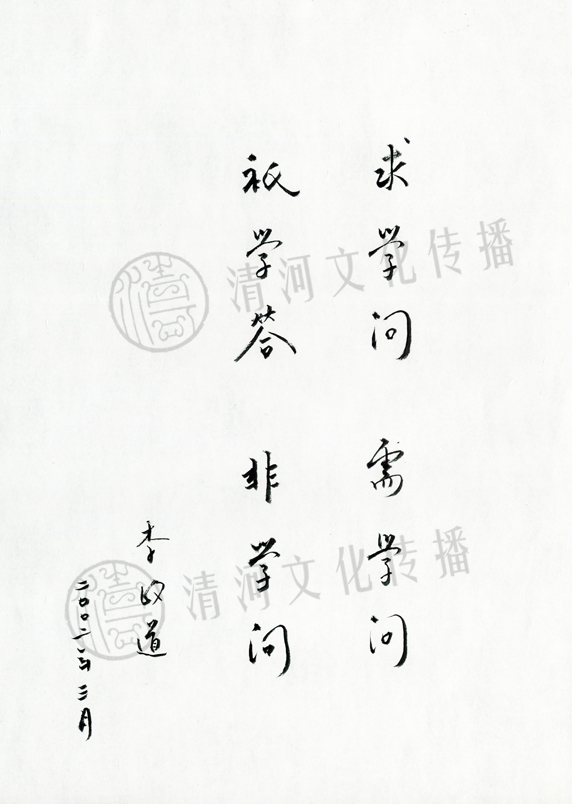 求学问 需学问
祇学答 非学问
李政道
二〇〇二年三月
清河文化传播
清河文化传播